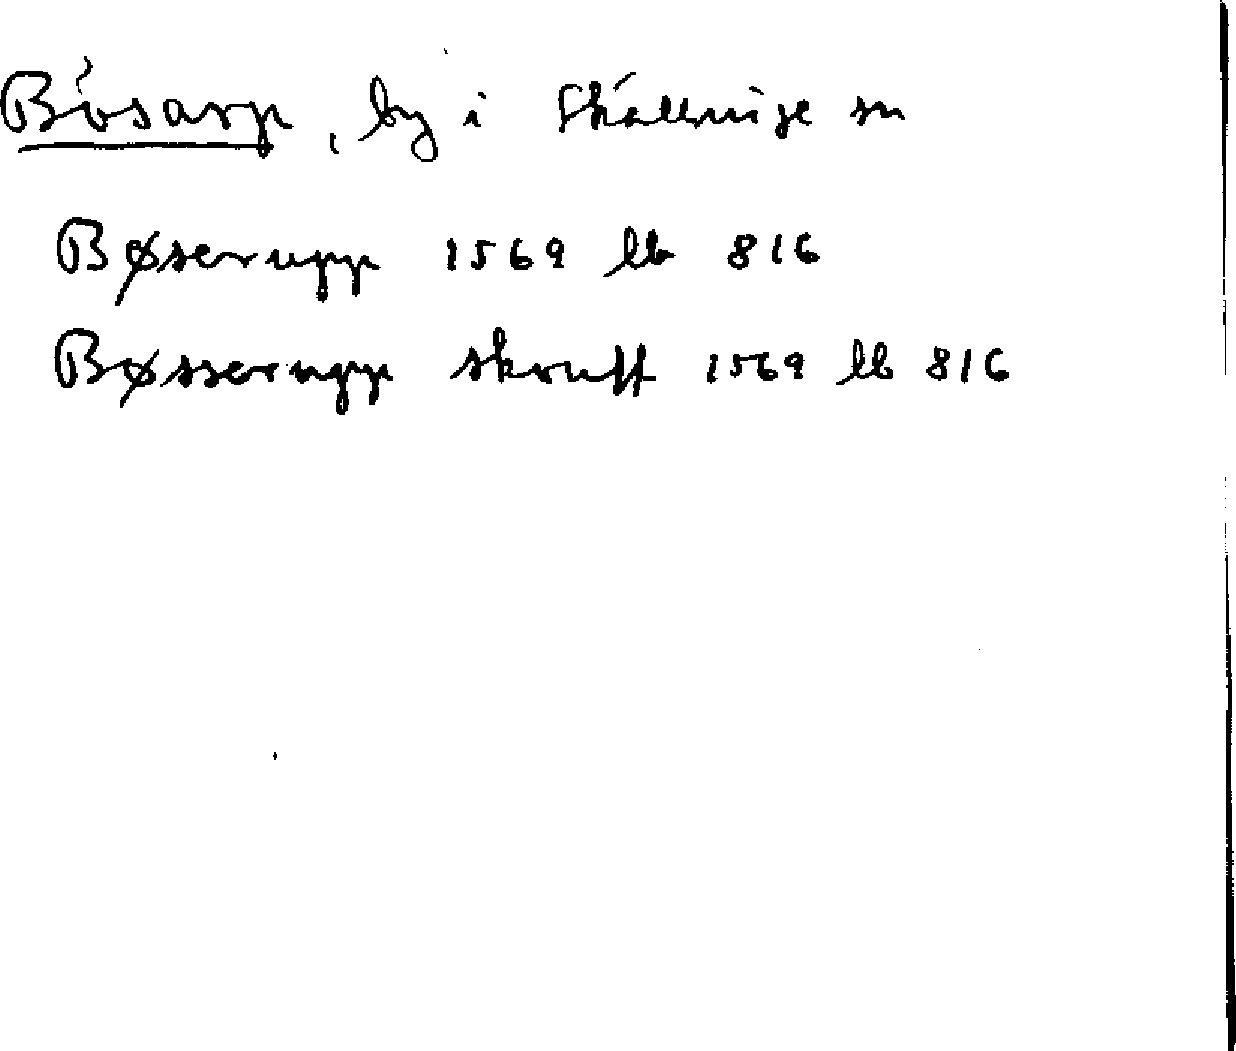 Bösarp, by i Skällvige sn
Bøserupp 1569 lb 816
Bøsserupp skrufft 1569 lb 816